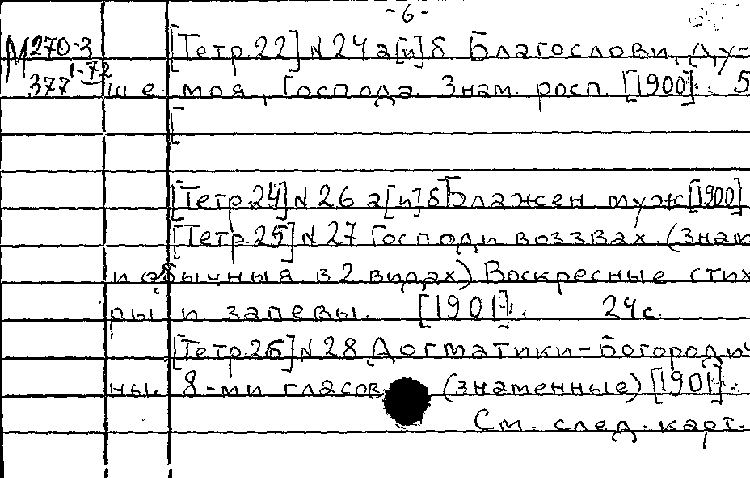 -6-
М 270-3 [Тетр.22] №24 а[и]б Благослови, ду-
377 1-72 ше моя, Господа. Знам. росп. [1900]. 5
[
[Тетр.24] №26 а[и]б Блажен муж [1900]
[Тетр.25] №27 Господи воззвах (знам
и обычныя в 2 видах) Воскресные стих
ры и запевы. [1901]. 24с.
[Тетр.26] №28 Догматики-богородич
ны 8-ми гласов (знаменные) [1901].
См. след. карт.